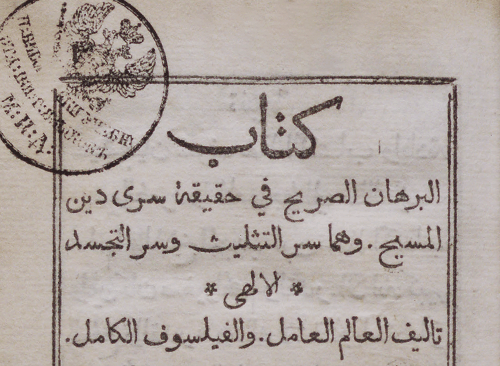 كتاب
البرهان الصريح في حقيقة سرى دين
المسيح . وهما سر التثليث وسر التجسد
* الالهى *
تاليف العالم العامل . والفيلسوف الكامل .
М.И.Д.